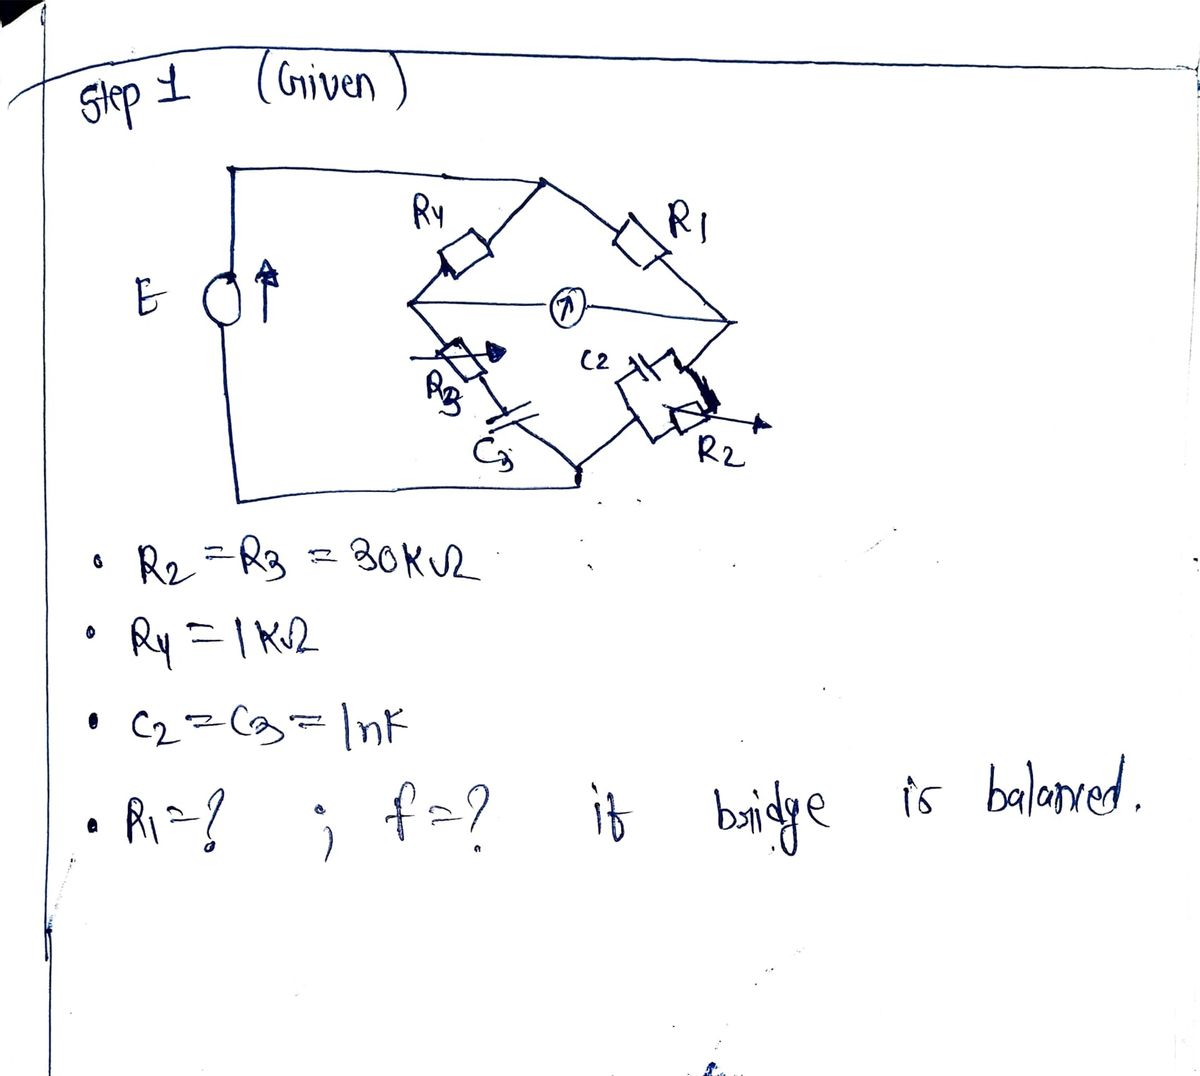 Step 1 (Given)
R4
R1
E
C2
R3
C3
R2
• R2 = R3 = 30KΩ
• R4 = 1KΩ
• C2 = C3 = 1nF
• R1 = ? ; f = ? if bridge is balanced.